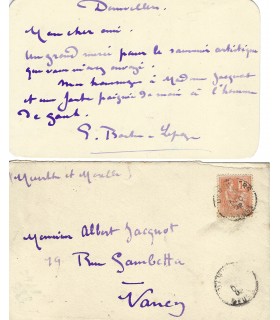 Damvillers.
Mon cher ami.
Un grand merci pour le souvenir artistique
que vous m'avez envoyé.
Mes hommages à Madame Jacquot
et une forte poignée de main à l'homme
de goût.
(Meurthe et Moselle)
Monsieur Albert Jacquot
19 Rue Gambetta
Nancy